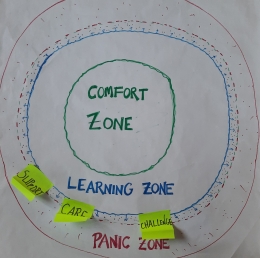 COMFORT
ZONE
LEARNING ZONE
SUPPORT
CARE
CHALLENGE
PANIC ZONE